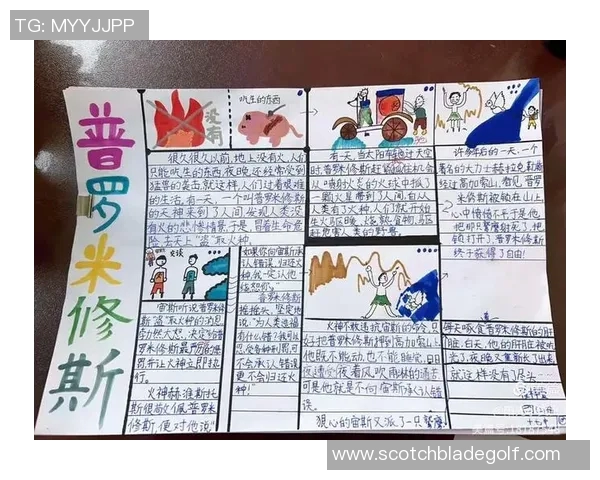 TG: MYYJJPP
普罗米修斯
没有
吃生的东西
很久很久以前,地上没有火,人们
只能吃生的东西,夜晚还经常受到
猛兽的袭击,就这样,人们过着艰难
的生活。有一天,一个叫普罗米修斯
的天神来到了人间,发现人类没
有火的悲惨情景,于是,冒着生命危
险,去天上“盗”取火种。
有一天,当太阳车
时,普罗米修斯
从
一颗火星,带到了人间。自从
人类有了火种,人们就开始
生火取暖、烧熟食物、驱
赶危害人类的野兽。
许多年后的一天,一个
著名的大力士赫拉克
经过高加索山,看见普罗
米修斯被锁在山上,
心中愤愤不平,于是他
锁打开了,普罗米修斯
终于获得了自由!
交谈
宙斯听说普罗米
修斯“盗”取火种的消息,
勃然大怒,决定给普
罗米修斯最严厉的
罚,并让火神立即执
行。
火神赫淮斯托
斯很敬佩普罗米
修斯,便对他说:“
如果你向宙斯承
认错误,归还火
种,我一定让他
饶恕你。”
普罗米修斯
摇摇头,坚定地
说:“为人类造福,
有什么错?我可以
忍受各种刑罚,但
不会承认错误,
更不会归还火
种!”
火神不敢违抗宙斯的命令,只
好把普罗米修斯押到高加索山上。
他既不能动,也不能睡觉,日
夜遭受着风吹雨林的痛苦,
可是他就是不向宙斯承认错
误。
狠心的宙斯又派了一只鹫鹰
每天啄食普罗米修斯的肝
脏,白天,他的肝脏被吃
光,夜晚又重新长了出来,
就这样没有了尽头……
www.scotchbladegolf.com